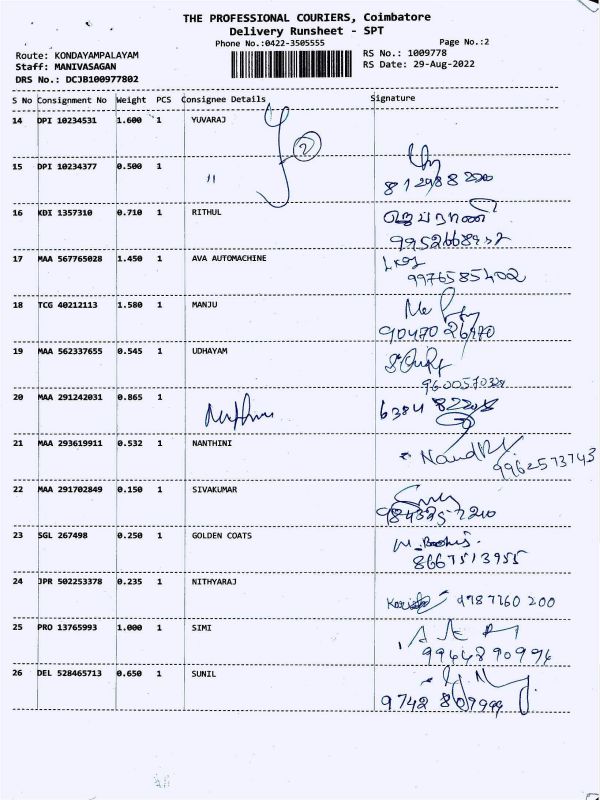 THE PROFESSIONAL COURIERS, Coimbatore
Delivery Runsheet - SPT
Phone No.:0422-3505555 Page No.:2
Route: KONDAYAMPALAYAM RS No.: 1009778
Staff: MANIVASAGAN RS Date: 29-Aug-2022
DRS No.: DCJB100977802
S No Consignment No Weight PCS Consignee Details Signature
14 DPI 10234531 1.600 1 YUVARAJ
2
15 DPI 10234377 0.500 1 "
16 KDI 1357310 0.710 1 RITHUL
17 MAA 567765028 1.450 1 AVA AUTOMACHINE
9976585402
18 TCG 40212113 1.580 1 MANJU
19 MAA 562337655 0.545 1 UDHAYAM
20 MAA 291242031 0.865 1
21 MAA 293619911 0.532 1 NANTHINI
9962573743
22 MAA 291702849 0.150 1 SIVAKUMAR
23 SGL 267498 0.250 1 GOLDEN COATS
8667513955
24 JPR 502253378 0.235 1 NITHYARAJ
25 PRO 13765993 1.000 1 SIMI
26 DEL 528465713 0.650 1 SUNIL